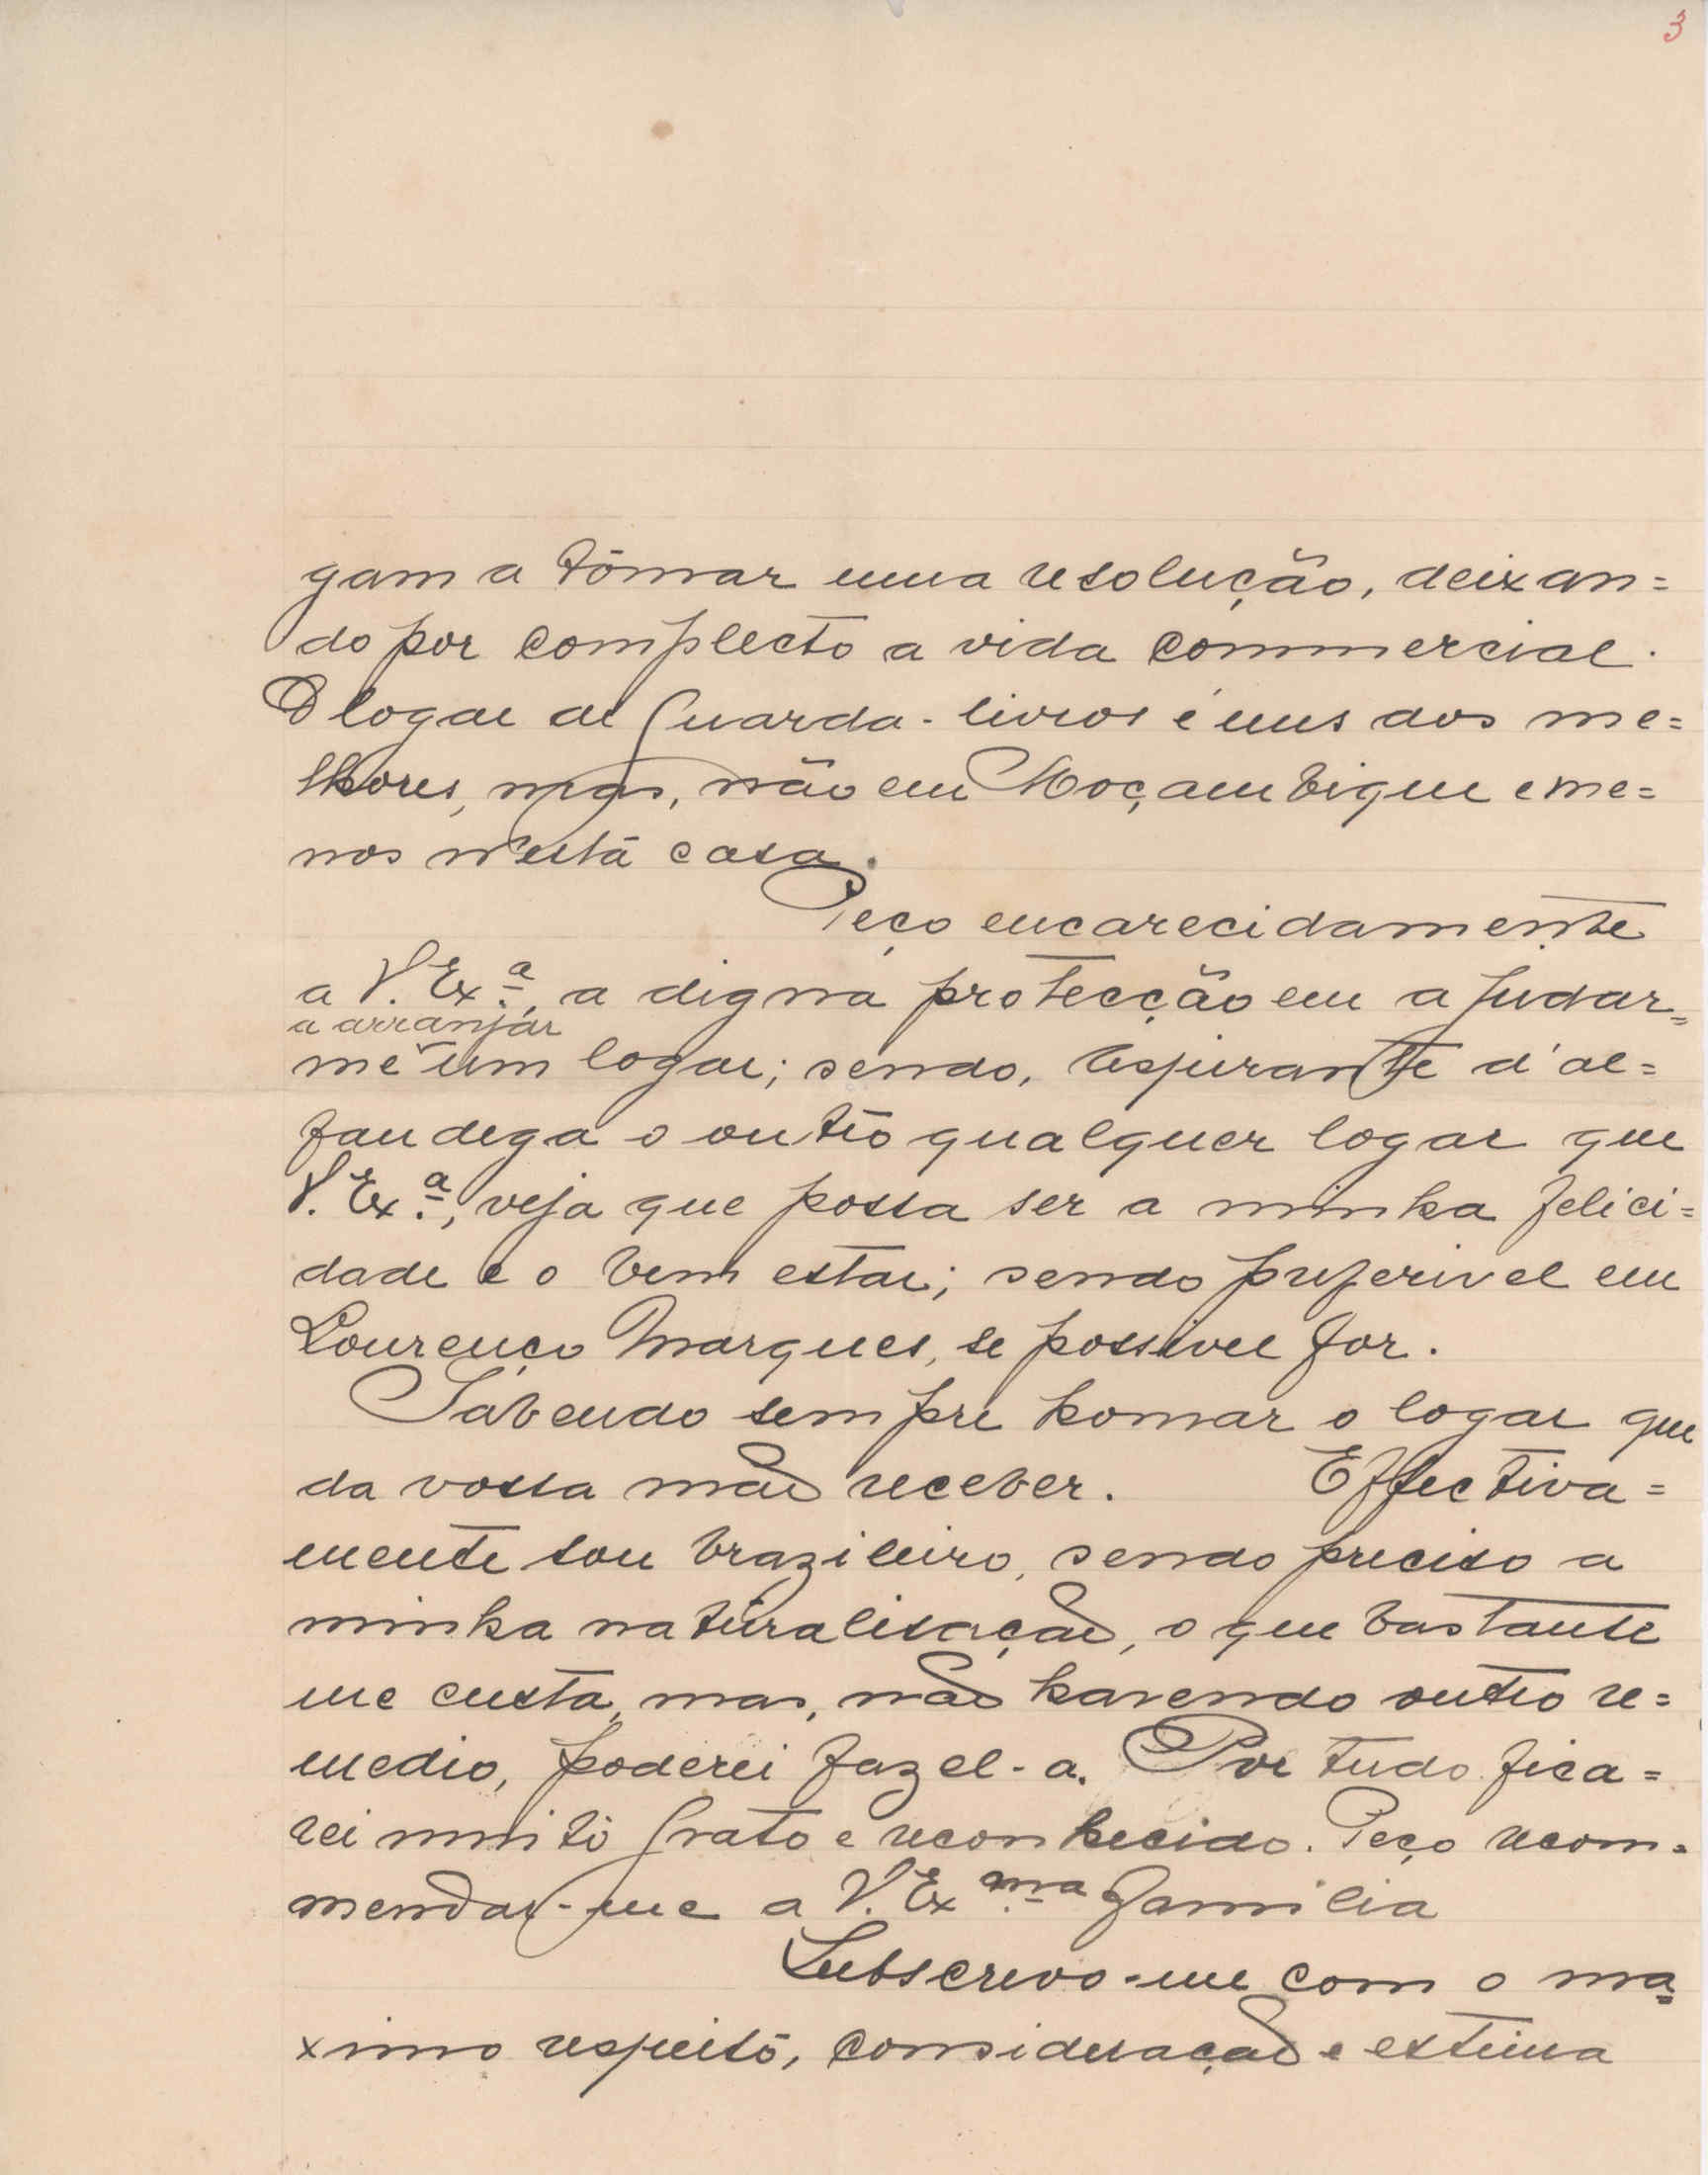 3
gam a tômar uma resolução, deixan=
do por complecto a vida commercial.
O logar de Guarda-livros é uns dos me=
lhores, mas, não em Moçambique e me=
nos n'esta casa.
Peço encarecidamente
a V. Ex.ª, a digna protecção em ajudar=
a arranjar
me um logar; sendo, Aspirante d'al=
fandega o outro qualquer logar que
V. Ex.ª, veja que possa ser a minha felici=
dade e o bem estar; sendo preferivel em
Lourenço Marques, se possivel for.
Sabendo sempre honrar o logar que
da vossa mão receber. Effectiva=
mente sou brazileiro, sendo preciso a
minha naturalisação, o que bastante
me custa, mas, não havendo outro re=
medio, poderei fazel-a. Por tudo fica=
rei muito grato e reconhecido. Peço recom=
mendar-me a V. Ex.ma familia
Subscrevo-me com o ma=
ximo respeito, consideração e estima